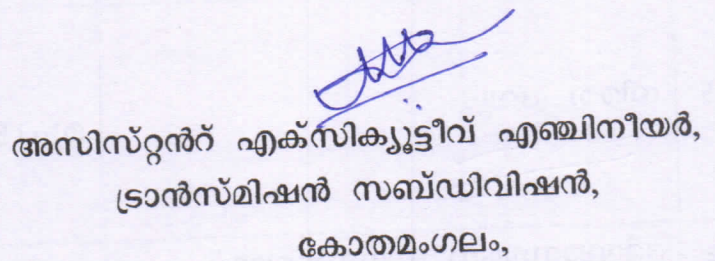 അസിസ്റ്റൻറ് എക്സിക്യൂട്ടീവ് എഞ്ചിനീയർ,
ട്രാൻസ്മിഷൻ സബ്ഡിവിഷൻ,
കോതമംഗലം,